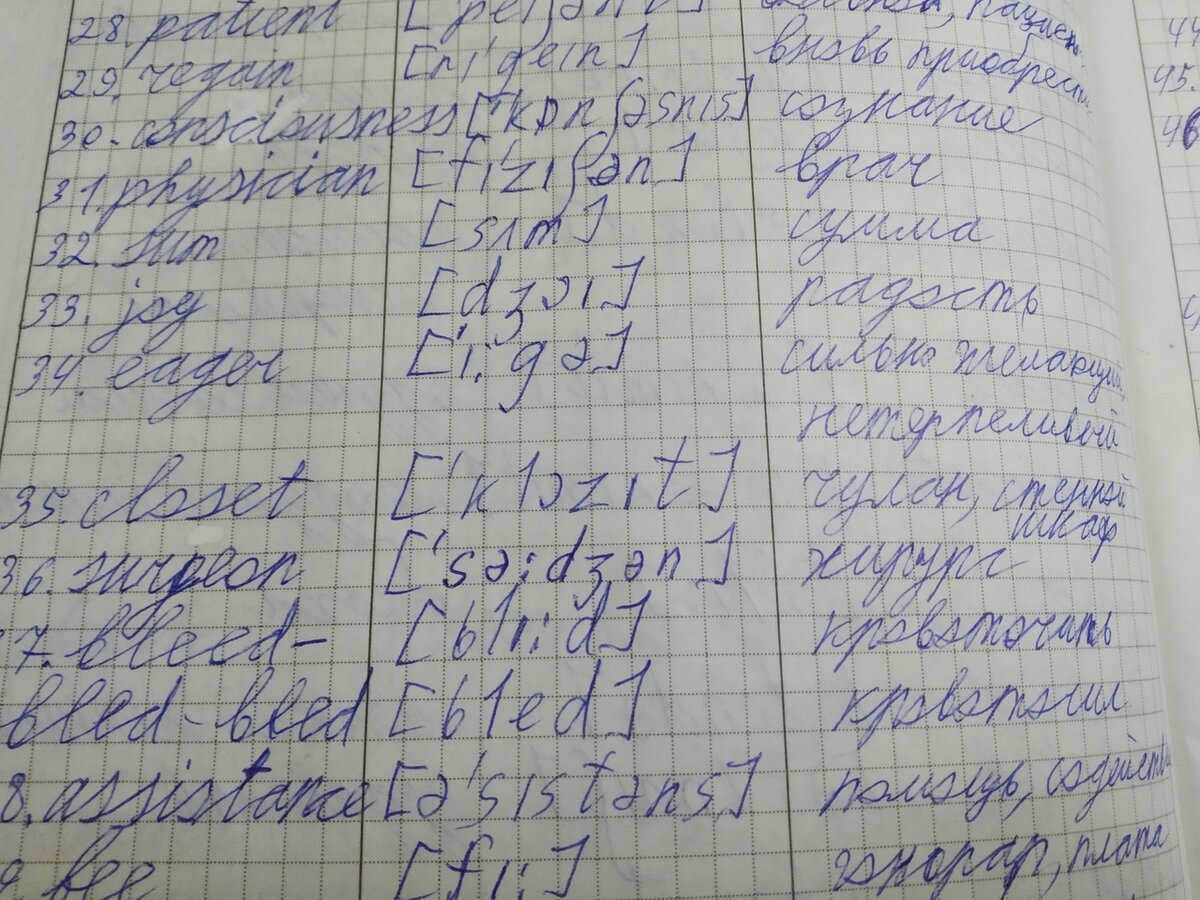 28. patient ['peiʃənt] больной, пациент
29. regain [ri'gein] вновь приобрести
30. consciousness ['kɔnʃəsnis] сознание
31. physician [fi'ziʃən] врач
32. sum [sʌm] сумма
33. joy [dʒɔi] радость
34. eager ['i:gə] сильно желающий,
нетерпеливый
35. closet ['klɔzit] чулан, стенной
шкаф
36. surgeon ['sə:dʒən] хирург
7. bleed- [bli:d] кровоточить
bled-bled [bled] кровоточил
8. assistance [ə'sistəns] помощь, содействи
9. fee [fi:] гонорар, плата
44
45.
46